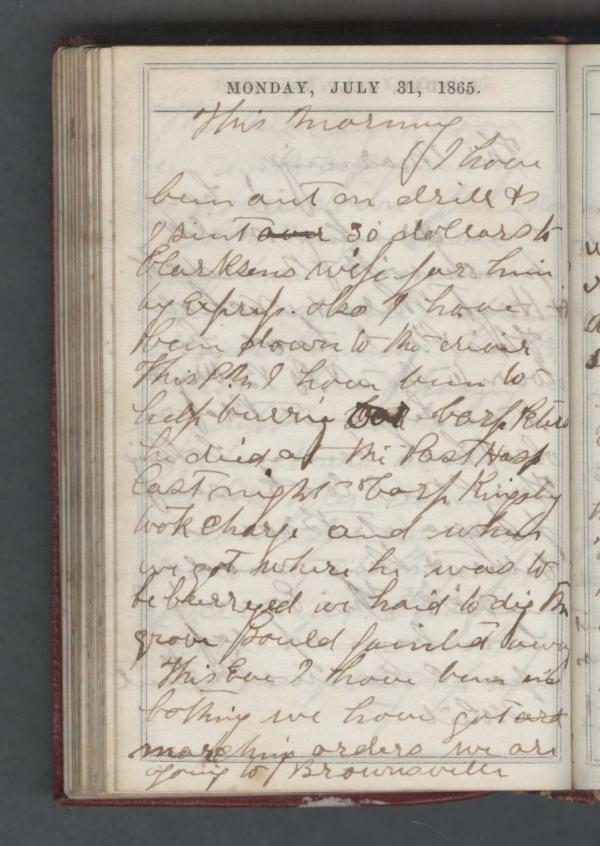 MONDAY, JULY 31, 1865.
This Morning
I have
bin out on drill &
I sint 30 dollars to
Clarksens wife for him
by Express. also I have
bein down to the rivir
This P.M I have bin to
help burrie Corp Peters
he died at the Post Hosp
Last night Corp Kingsby
took charge and when
we got where he was to
be burryed we haid to dig the
grove fainted away
This Eve I have ben in
bothing we have got
marching orders we are
going to Brownsville